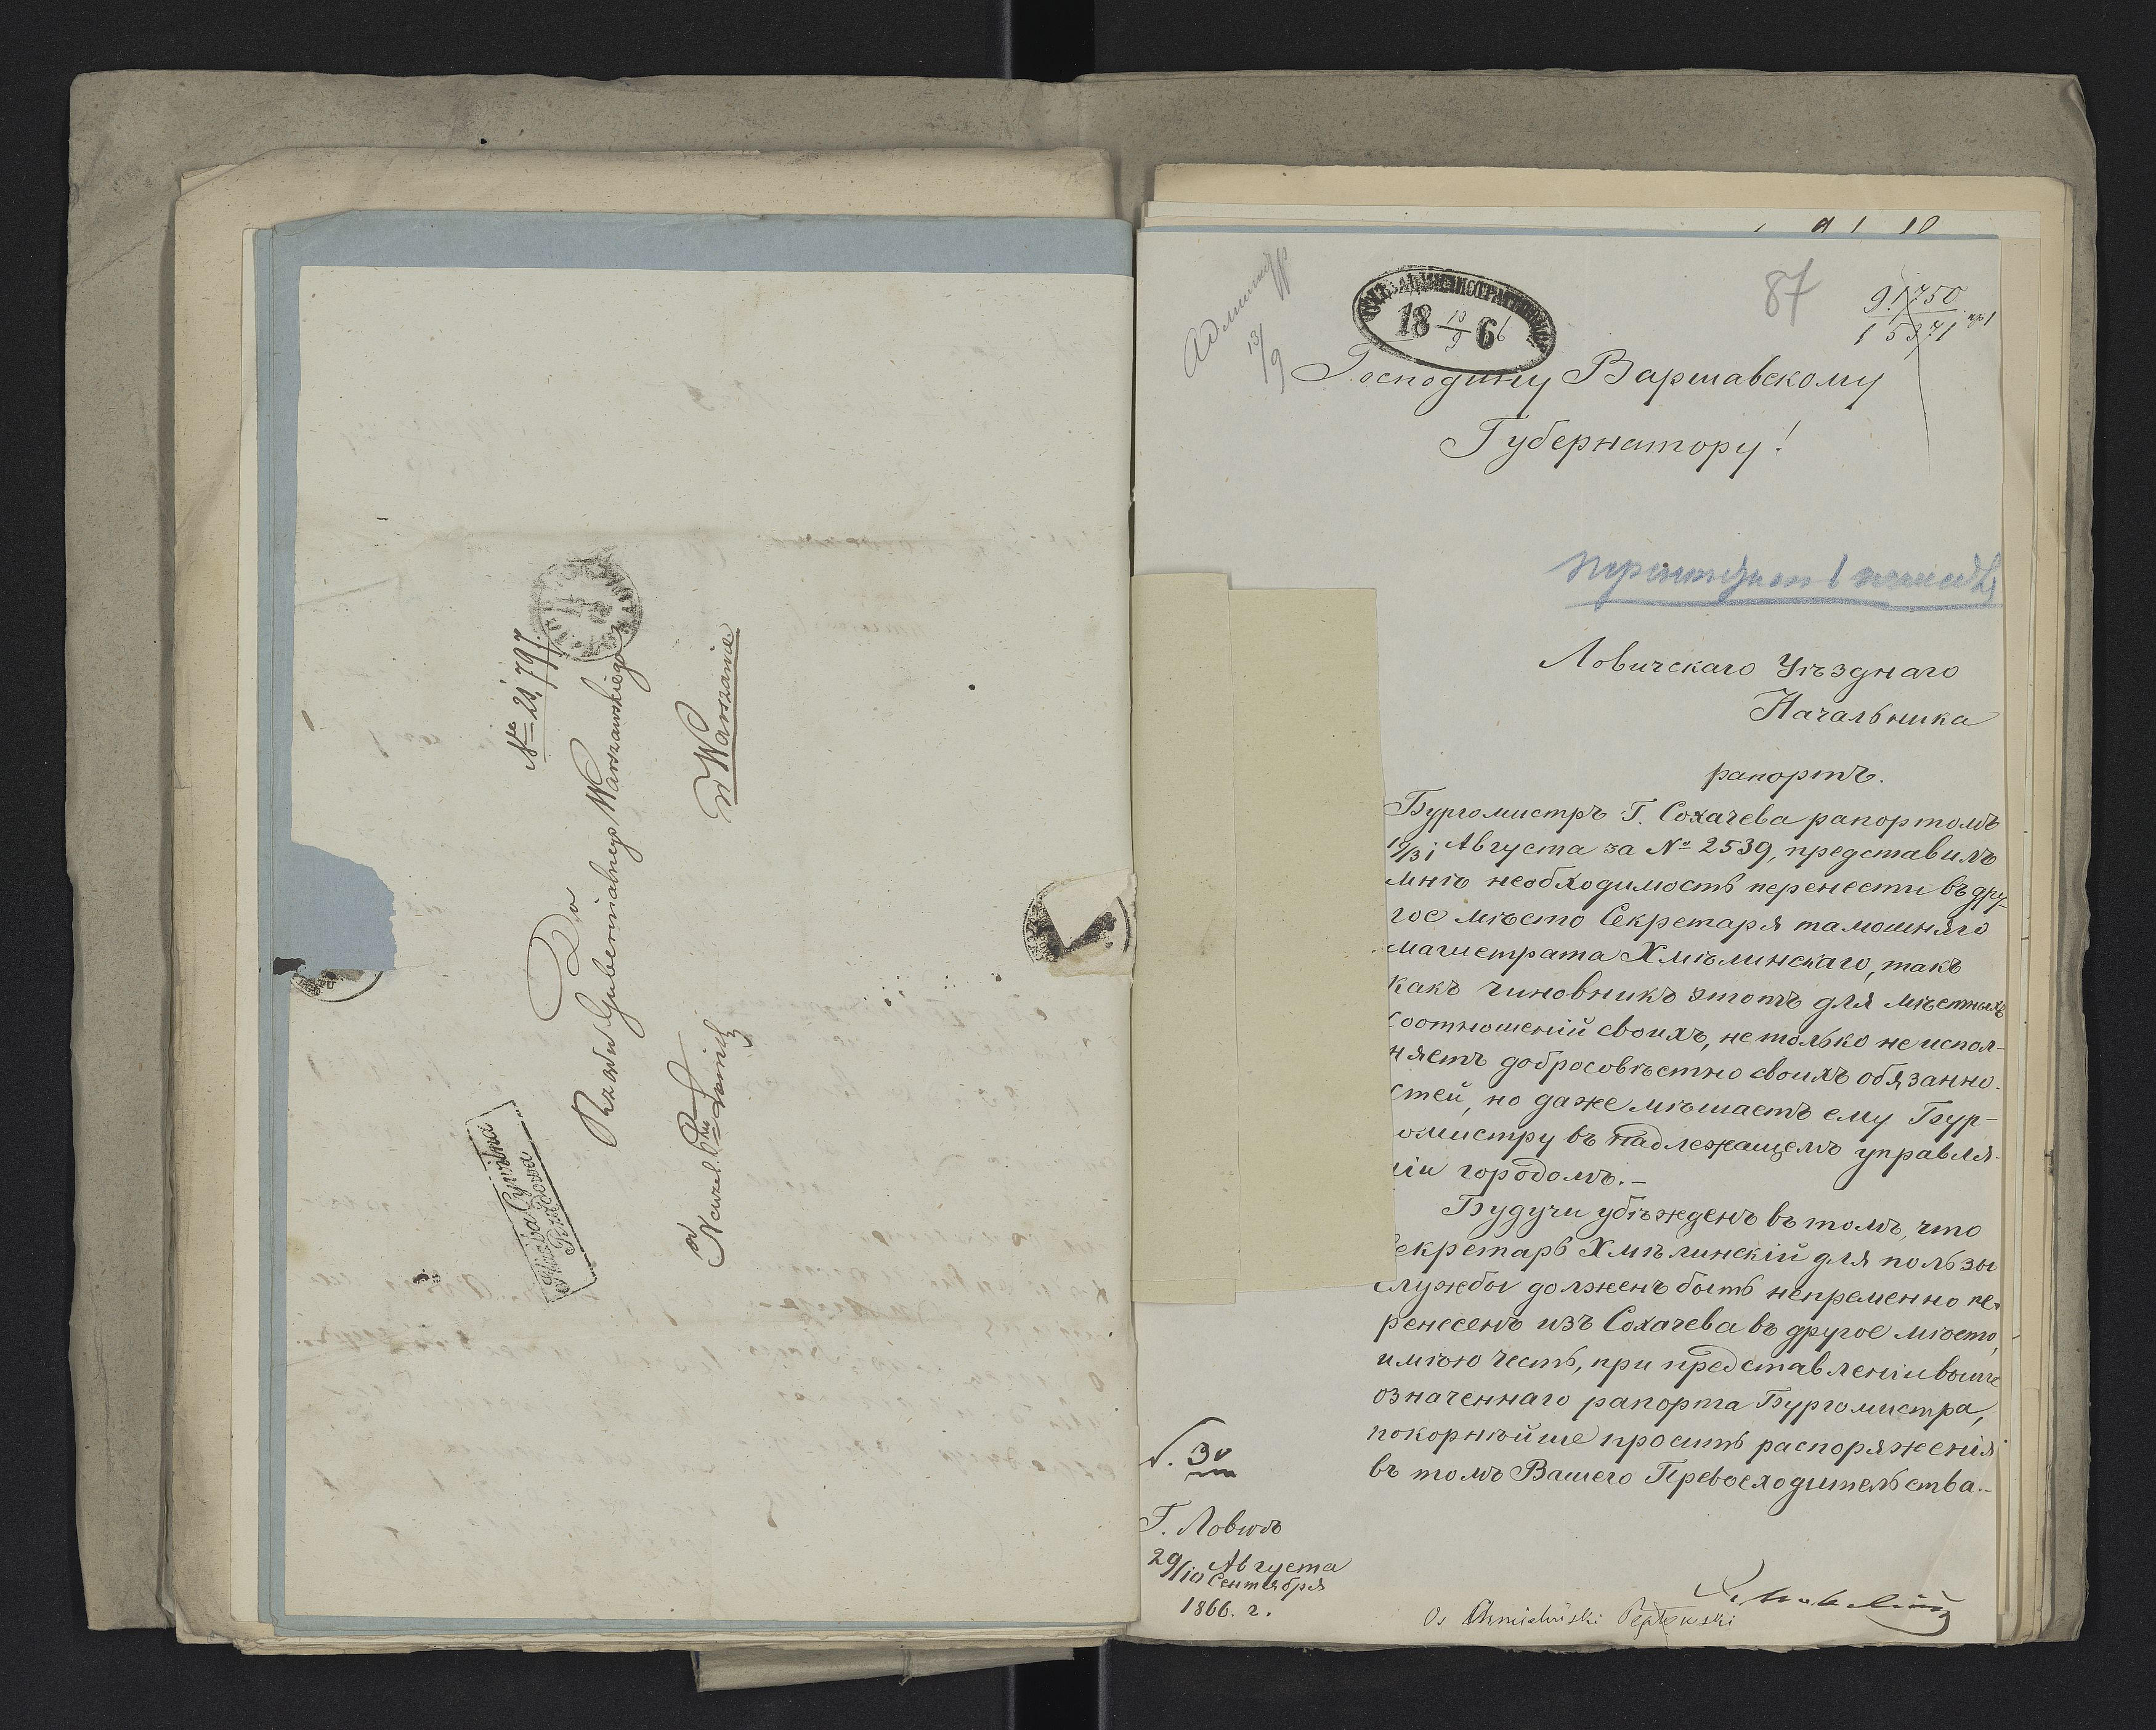 № 21,797.
Do
Rządu Gubernialnego Warszawskiego
w Warszawie
od
Naczel. Ptu
Służba Cywilna
Rządowa
87
Админістр
13/9
18 10/9 66
9.1750
15371
Господину Варшавскому
Губернатору!
Ловичскаго Уѣзднаго
Начальника
рапортъ.
Бургомистръ Г. Сохачева рапортомъ
19/31 Августа за № 2539, представилъ
мнѣ необходимость перенести въ дру-
гое мѣсто Секретаря тамошняго
магистрата Хмѣлинскаго, такъ
какъ чиновникъ этотъ для мѣстныхъ
соотношеній своихъ, не только не испол-
няетъ добросовѣстно своихъ обязанно-
стей, но даже мѣшаетъ ему Бур-
омистру въ надлежащемъ управле-
ніи городомъ.–
Будучи убѣжденъ въ томъ, что
екретарь Хмѣлинскій для пользы
службы долженъ быть непременно пе-
ренесенъ изъ Сохачева въ другое мѣсто,
имѣю честь, при представленіи выше
означеннаго рапорта Бургомистра,
покорнѣйше просить распоряженія
въ томъ Вашего Превосходительства.–
Г. Ловичъ
29/10 Августа
Сентября
1866. г.
Os Chmieliński